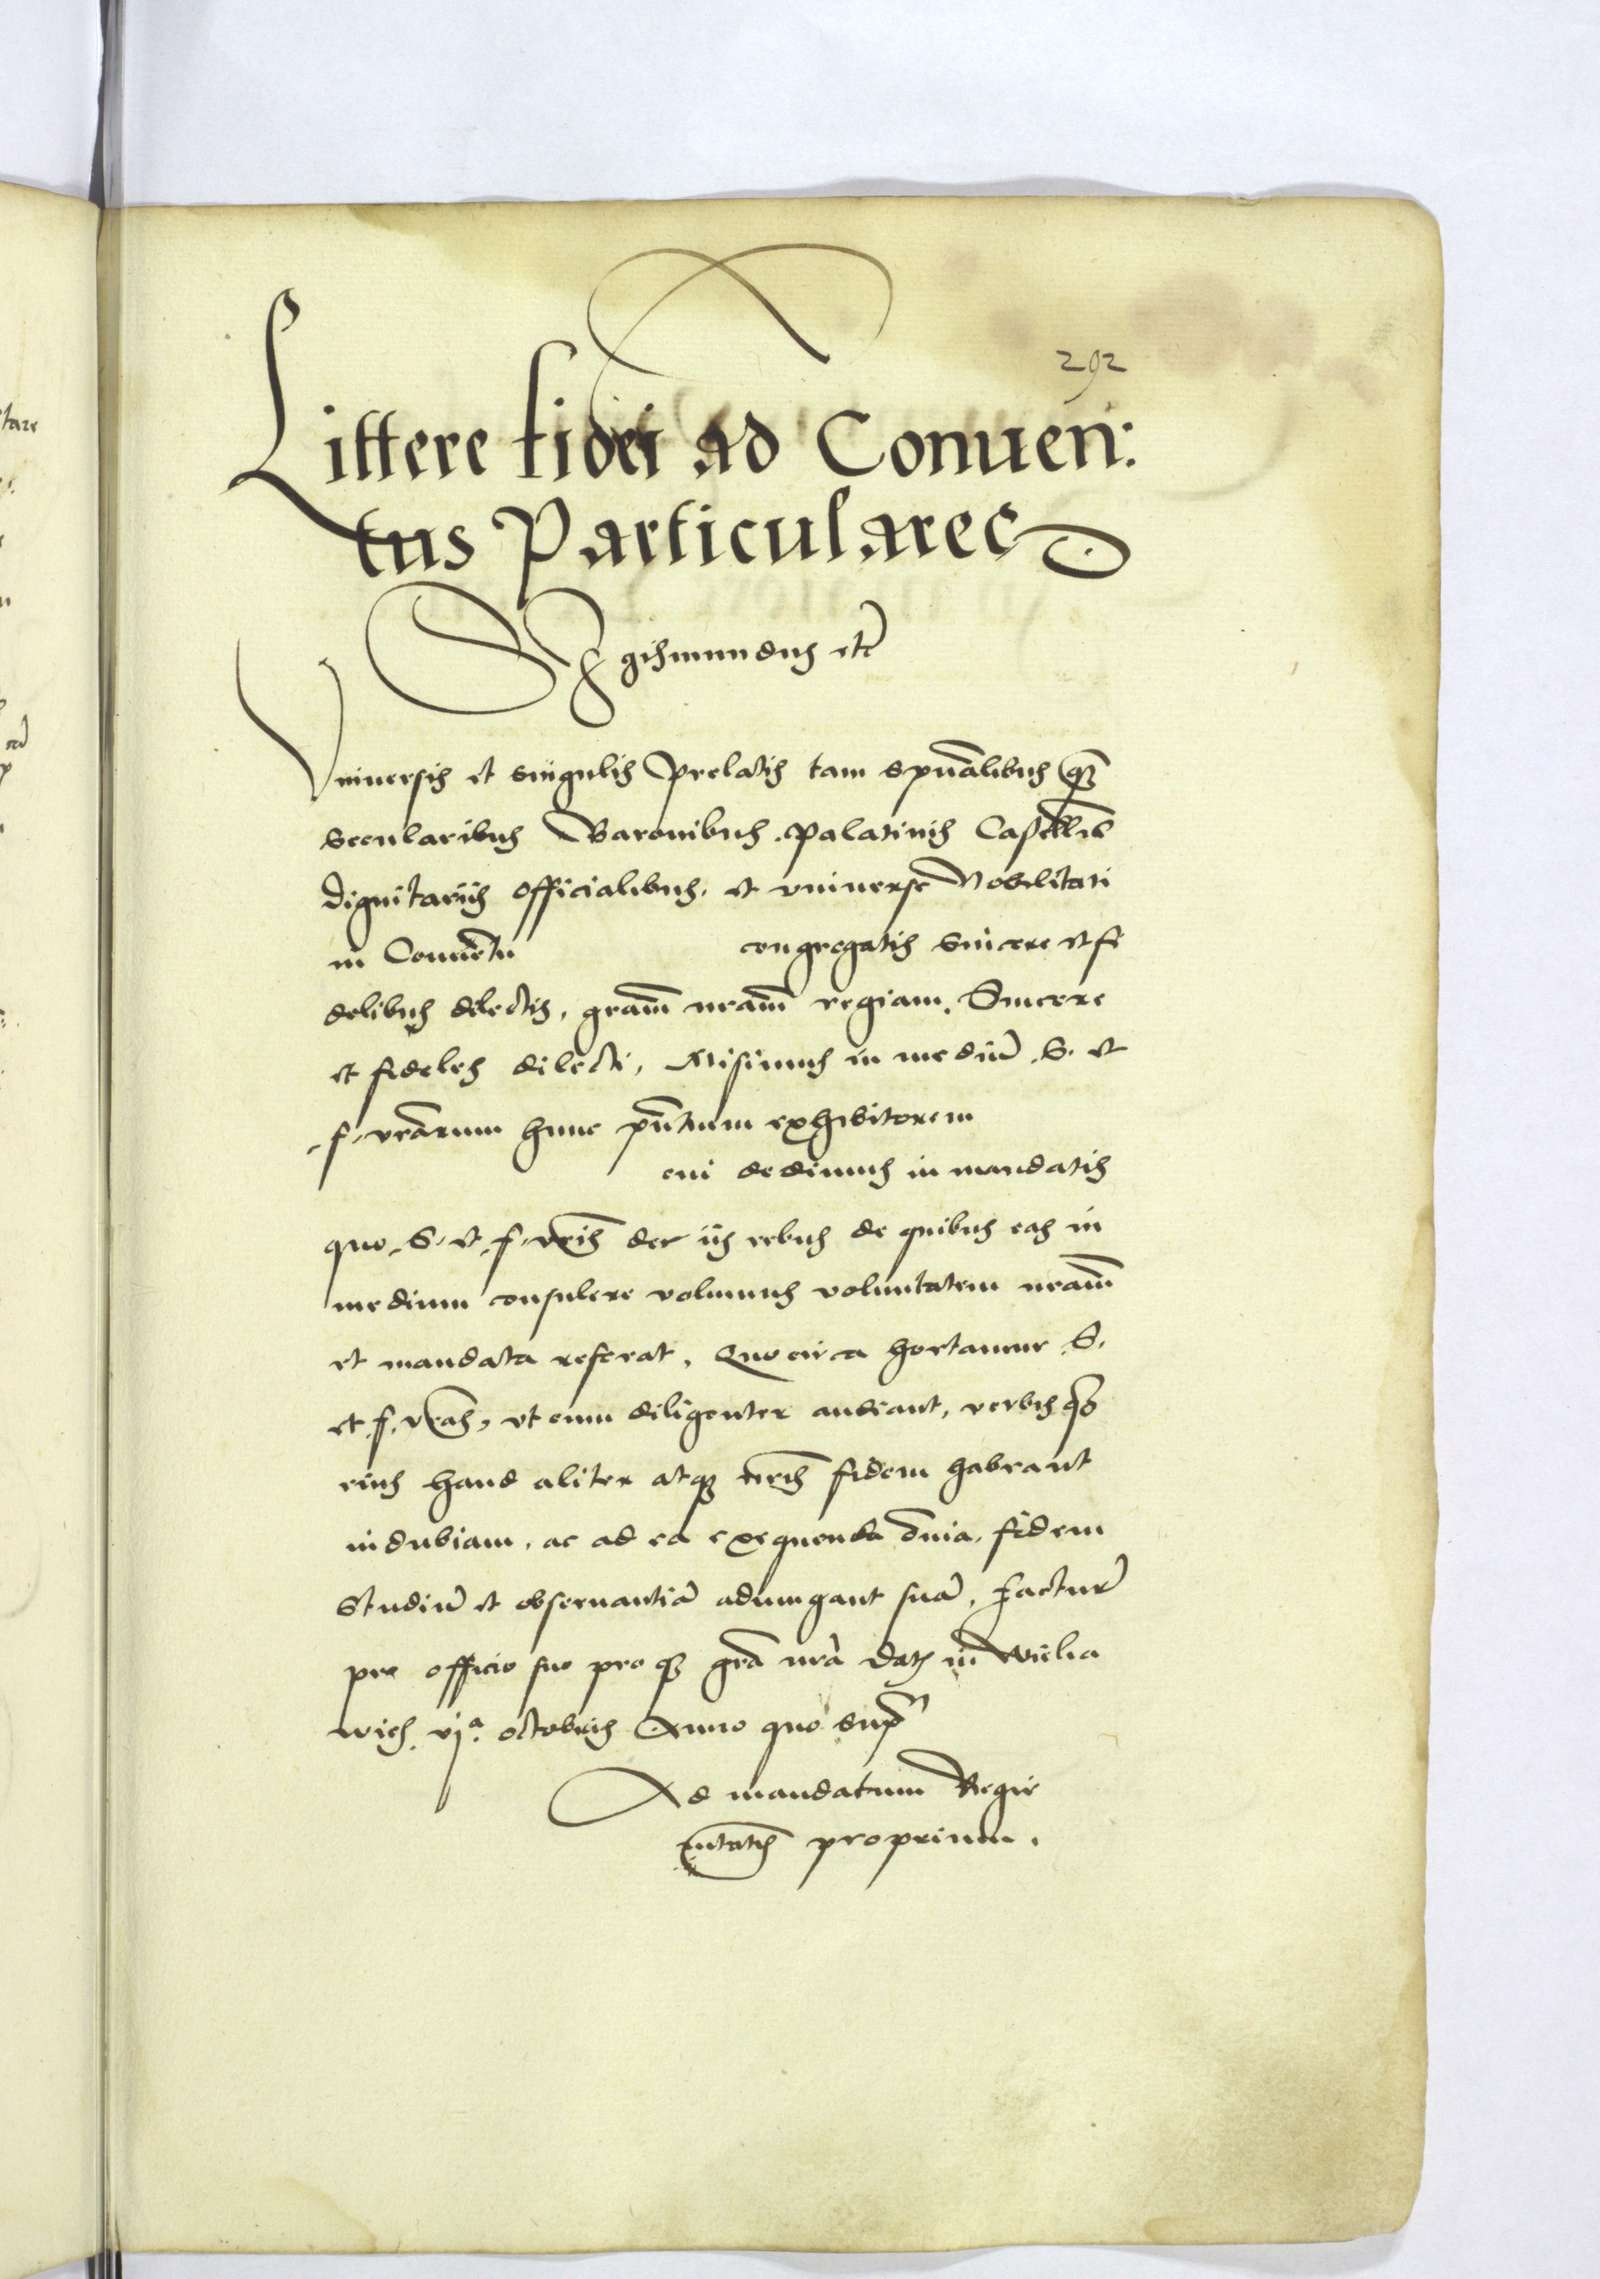 292
Littere fidei ad Conuen:
tus Particulares
Sigismundus etc
Vniuersis et singulis Prelatis tam spualibus qm
secularibus Baronibus. palatinis Castellis
dignitariis officialibus. et vniuerse Nobilitati
in Conuetu congregatis sincere et fi
delibus dilectis, gram nram regiam. Sincere
et fideles dilecti, Misimus in mediu .S. et
.f. vrarum hunc pntium exhibitorem
cui dedimus in mandatis
quo .S. et .f. vris de iis rebus de quibus eas in
medium consulere volumus voluntatem nram
et mandata referat. Quo circa hortamur .S.
et .f. vras, vt eum diligenter audiant, verbis
eius haud aliter atq nris fidem habeant
indubiam, ac ad ea exequenda omia, fidem
Studiu et obseruantia adiungant sua, factur
pre officio suo pro q gra nra Dat in Wiela
wies. vja. octobris Anno quo sup
Ad mandatum Regie
mtatis proprium.